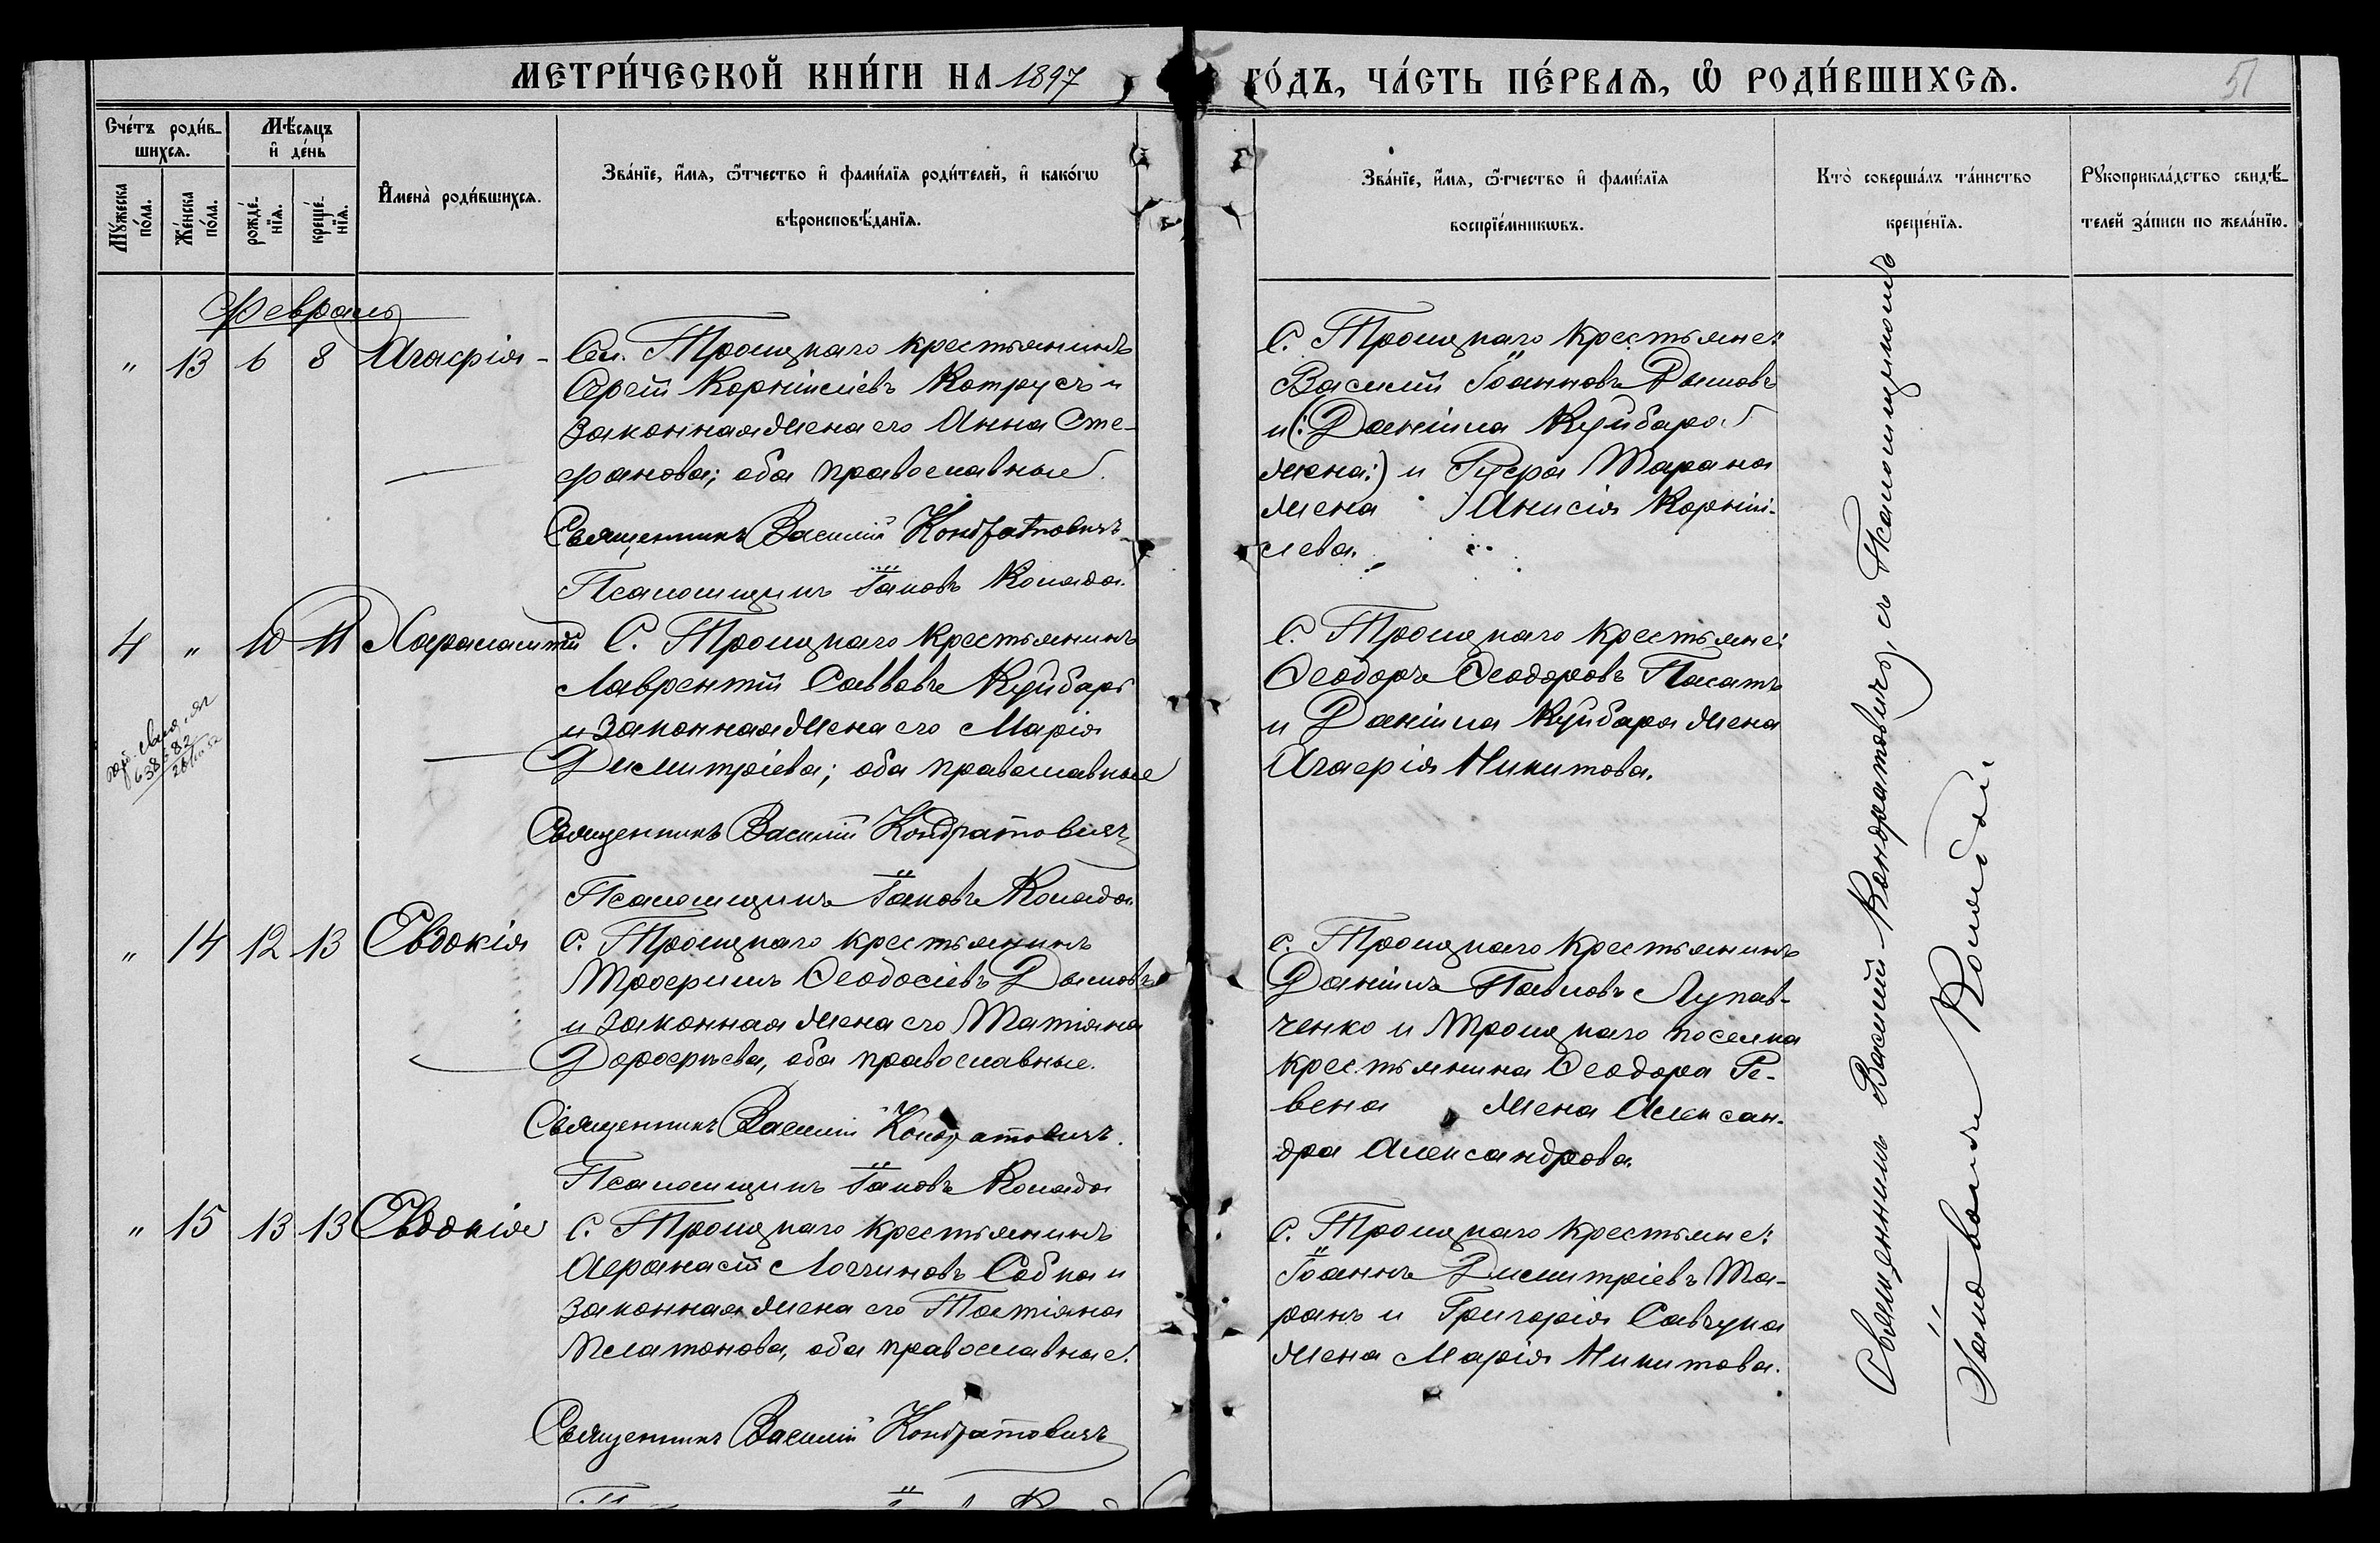 МЕТРИ́ЧЕСКОЙ КНИ́ГИ НА 1897
ГО́ДЪ, ЧА́СТЬ ПЕ́РВАѦ, Ѽ РОДИ́ВШИХСѦ.
51
Сче́тъ роди́в-
шихсѧ.
Мѣ́сѧцъ
и҆ де́нь
Мꙋ́жеска
по́ла.
Же́нска
по́ла.
рожде́-
нїѧ.
креще́-
нїѧ.
И҆мена̀ роди́вшихсѧ.
Зва́нїе, и҆́мѧ, ѻ҆́тчество и҆ фами́лїѧ роди́телей, и҆ како́гѡ
вѣроисповѣ́данїѧ.
Зва́нїе, и҆́мѧ, ѻ҆́тчество и҆ фами́лїѧ
воспрїе́мникѡвъ.
Кто̀ соверша́лъ та́инство
креще́нїѧ.
Рꙋкоприкла́дство свидѣ́-
телей за́писи по жела́нїю.
Февраль
" 13 6 8 Агафія -
Сел. Троицкаго крестьянинъ
Сергій Корниліевъ Котрусъ и
законная жена его Анна Сте-
фанова; оба православные.
Священникъ Василій Кондратовичъ
Псаломщикъ Іаковъ Коляда.
С. Троицкаго крестьяне:
Василій Іоанновъ Дымовъ
и (: Даніила Куйбара
жена :) и Петра Тарана
жена Анисія Корни-
лева.
4 " 10 11 Харалампій
С. Троицкаго крестьянинъ
Лаврентій Савввовъ Куйбаръ
и законная жена его Марія
Димитріева; оба православные
Священникъ Василій Кондратовичъ
Псаломщикъ Іаковъ Коляда
С. Троицкаго крестьяне:
Ѳеодоръ Ѳеодоровъ Пасатъ
и Даніила Куйбара жена
Агафія Никитова.
" 14 12 13 Евдокія
С. Троицкаго крестьянинъ
Трофимъ Ѳеодосіевъ Дымовъ
и законная жена его Татіана
Дорофеева, оба православные.
Священникъ Василій Кондратовичъ.
Псаломщикъ Іаковъ Коляда
с. Троицкаго крестьянинъ
Даніилъ Павловъ Лупав-
ченко и Троицкаго поселка
крестьянина Ѳеодора Ре-
вена жена Алексан-
дра Александрова.
" 15 13 13 Евдокія
С. Троицкаго крестьянинъ
Афанасій Логгиновъ Собка и
законная жена его Татіана
Платонова, оба православные.
Священникъ Василій Кондратовичъ
С. Троицкаго крестьяне:
Іоаннъ Димитріевъ Та-
ранъ и Григорія Савчука
жена Марія Никитова.
Священникъ Василій Кондратовичъ, съ Псаломщикомъ
Іаковомъ Колядой